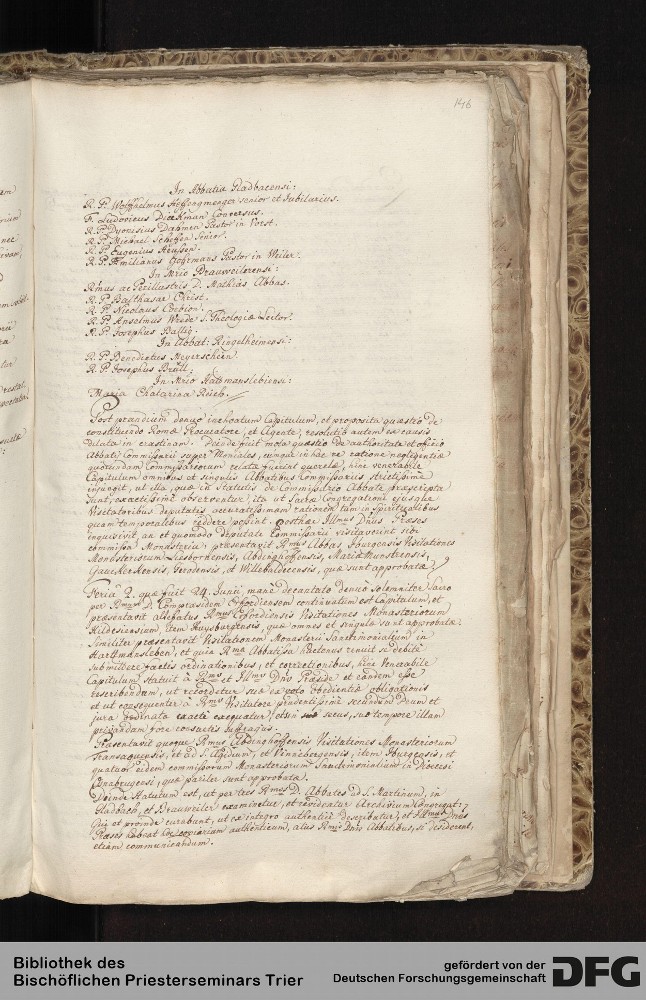 146
In Abbatia Gladbacensi:
R. P. Wolffhelmus senior et Jubilarius.
F. Ludovicus Dieckman Conversus.
R. P. Dyonisius Dahmen Pastor in Vorst.
R. P. Michael Schiffen Senior.
R. P. Eugenius Heussen.
R. P. Æmilianus Gohrmans Pastor in Weiler.
In Mrio Brauweilerensi:
Rmus ac Perillustris D. Mathias Abbas.
R. P. Balthasar Christ.
R. P. Nicolaus
R. P. Anselmus Wrede S. Theologiæ Lector.
R. P. Josephus Ballig.
In Abbat: Ringelheimensi:
R. P. Benedictus Meyerscheen.
R. P. Josephus Brüll.
In Mrio Hattmanslebiensi:
Maria Chatarina Reich.
Post prandium denuo inchoatum Capitulum, et proposita quæstio de
constituendo Romæ Procuratore, et Agente, resolutio autem ex causis
dilata in crastinam. Deinde fuit mota quæstio de authoritate et officio
Abbatis Commissarii super Moniales, cumque in hac re ratione negligentiæ
quorundam Commissariorum relatæ fuerint querelæ, hinc venerabile
Capitulum omnibus et singulis Abbatibus Commissariis strictissimè
injungit, ut illa, quæ in Statutis de Commissario Abbate præscripta
sunt, exactissimè observentur, ita ut Sacræ Congregationi ejusque
Visitatoribus deputatis accuratissimam rationem tum in Spiritualibus
quam temporalibus reddere possint. Posthac Illmus Dnus Præses
inquisivit, an et quomodo deputati Commissarii visitaverint sibi
commissa Monasteria; præsentavit Rmus Abbas Iburgensis Visitationes
Monasteriorum Liesbornensis, Abdinghoffensis, Mariæ Munstrensis,
Gaurkerkensis, Gerodensis, et Willebaldecensis, quæ sunt approbatæ.
Feria 2. quæ fuit 24. Junii manè decantato denuò solemniter Sacro
per Rmum D. Compræsidem Erfordiensem continuatum est Capitulum, et
præsentavit allebatus Rmus Erfordiensis Visitationes Monasteriorum
Hildesiensium Item Huysburgensis, quæ omnes et singulæ sunt approbatæ.
Similiter præsentavit Visitationem Monasterii Sanctimonialium in
Hattmansleben, et quia Rma Abbatissa hactenus renuit se debitè
submittere factis ordinationibus, et correctionibus, hinc Venerabile
Capitulum statuit à Rmo et Illmo Dno Præside et eandem esse
rescribendum, ut recordetur suæ ex voto obedientiæ obligationis
et ut consequenter à Rmo Visitatore prudentissimè secundum Deum et
jura ordinata exactè exequatur, etsin secus, suo tempore illam
privandam fore consuetis suffragiis.
Præsentavit quoque Rmus Abdinghoffensis Visitationes Monasteriorum
Transaquensis, et ad S. Ægidium, et Vinnebergensis, item Iburgensis, et
quatuor eidem commissorum Monasteriorum Sanctimonialium in Diœcesi
Osnabrugensi, quæ pariter sunt approbatæ.
Deinde statutum est, ut per tres Rmos D. Abbates ad S. Martinum, in
Gladbach, et Brauweiler examinetur, et revideatur Archivium Congregat:
Qui et proinde curabunt, ut ex integro authenticè describatur, et Illmus Dnus
Præses habeat hoc copiarium authenticum, aliis Rmis Dnis Abbatibus, si desiderent,
etiam communicandum.
Bibliothek des
Bischöflichen Priesterseminars Trier
gefördert von der
Deutschen Forschungsgemeinschaft
DFG